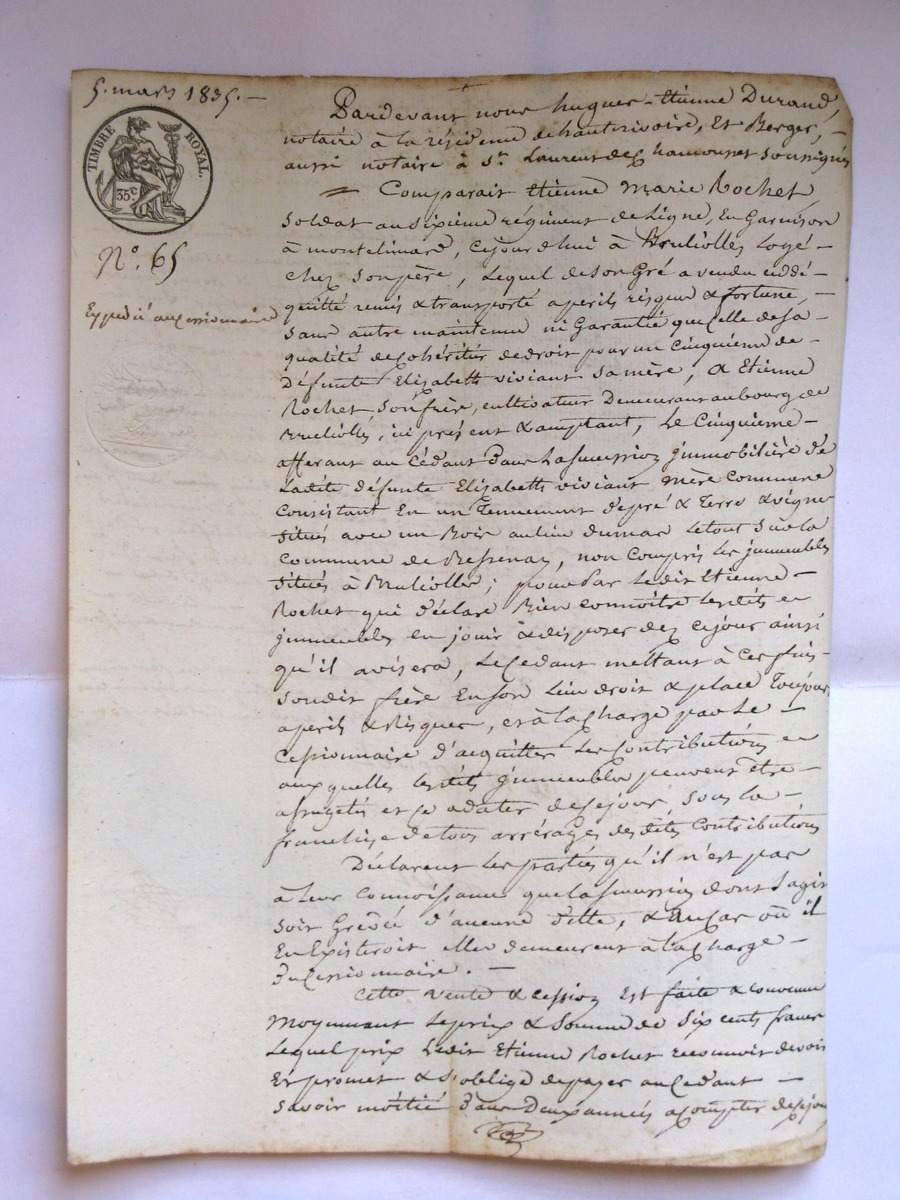 5. mars 1835. —
TIMBRE ROYAL.
35 c.
N.o 65
Expédié au cessionnaire
Pardevant nous hugues - Etienne Durand,
notaire à la résidence de hauterivoire, et Berger, —
aussi notaire à St. Laurent de Chamousset soussignés
= Comparait Etienne Marie Rochet,
soldat au sixieme régiment de Ligne, En Garnison
à montelimard, cejourdhui à Brulliolles logé —
chez son père, Lequel de son Gré a vendu cédé —
quitté remis & transporté a perils risques & fortune, —
sans autre maintenue ni Garantie que celle de sa —
qualité de cohéritier de droit pour un Cinquieme de —
Défunte Elizabeth viviant sa mère, à Etienne
Rochet, son frère, cultivateur Demeurant au bourg de
Brulliolles, ici présent & acceptant, Le Cinquieme —
afferant au Cédant Dans La succession jmmobiliére de
Ladite défunte Elizabeth viviant mère commune
Consistant En un Tennement de pré & Terre & vigne
Situés avec un Bois au lieu du mas le tout sur la
Commune de Bessenay, non Compris les jmmeubles
Situés à Brulliolles; pour Par Ledit Etienne —
Rochet qui déclare Bien connoitre lesdits
jmmeubles en jouir & disposer dez cejour ainsi
qu'il avisera, Le Cedant mettant à Ces fins —
Soudit frère En son Lieu droit & place Toujours
a perils & Risques, et à la Charge par Le —
Cessionnaire d'acquitter Les Contributions
auxquelles lesdits jmmeubles peuvent être —
assujetis et ce adater de cejour, sous la —
franchise de tous arrérages desdites Contributions
Déclarent Les parties qu'il n'est pas
à Leur connoissance que la succession dont s'agit
soit Grévée d'aucune dette, & au cas où il
En Existeroit elles demeurent à la Charge —
Du Cessionnaire. —
Cette vente & cession Est faite & convenue
Moyennant Le prix & Somme de Six cents francs
Lequel prix Ledit Etienne Rochet reconnoit devoir
Et promet & s'oblige de payer au Cedant —
Savoir moitié Dans Deux années a compter de cejour